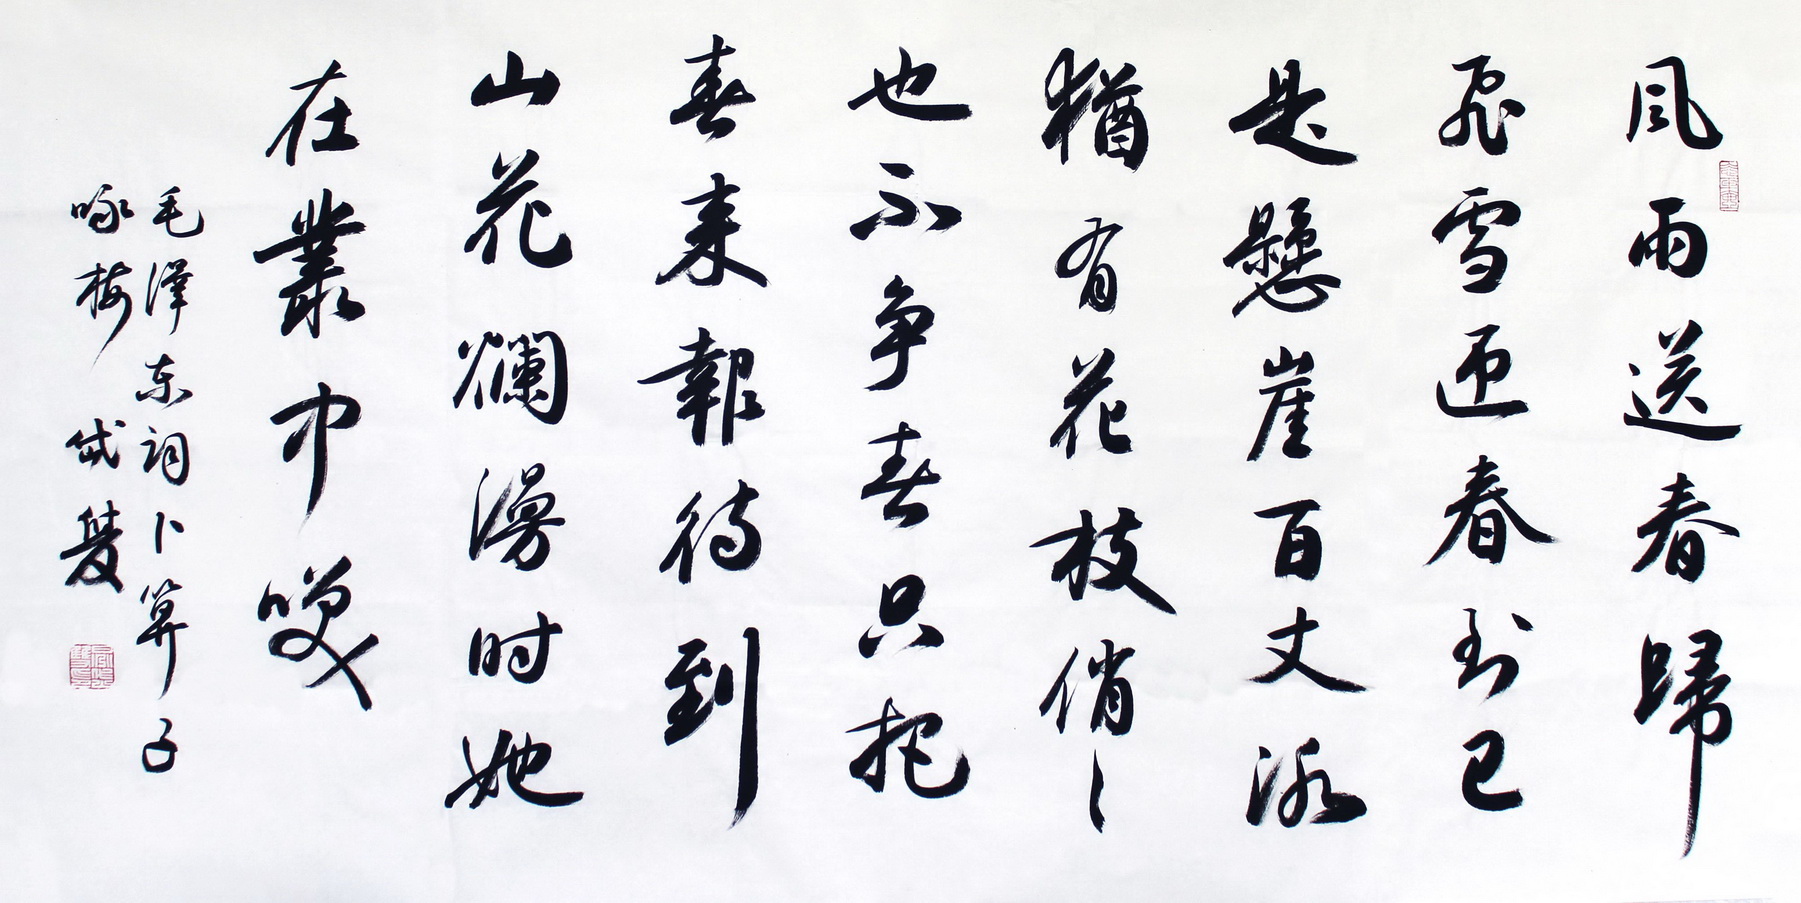 風雨送春歸
飛雪迎春到已
是懸崖百丈冰
猶有花枝俏〻
也不争春只把
春来報待到
山花爛漫时她
在叢中咲
毛澤东词卜算子
咏梅